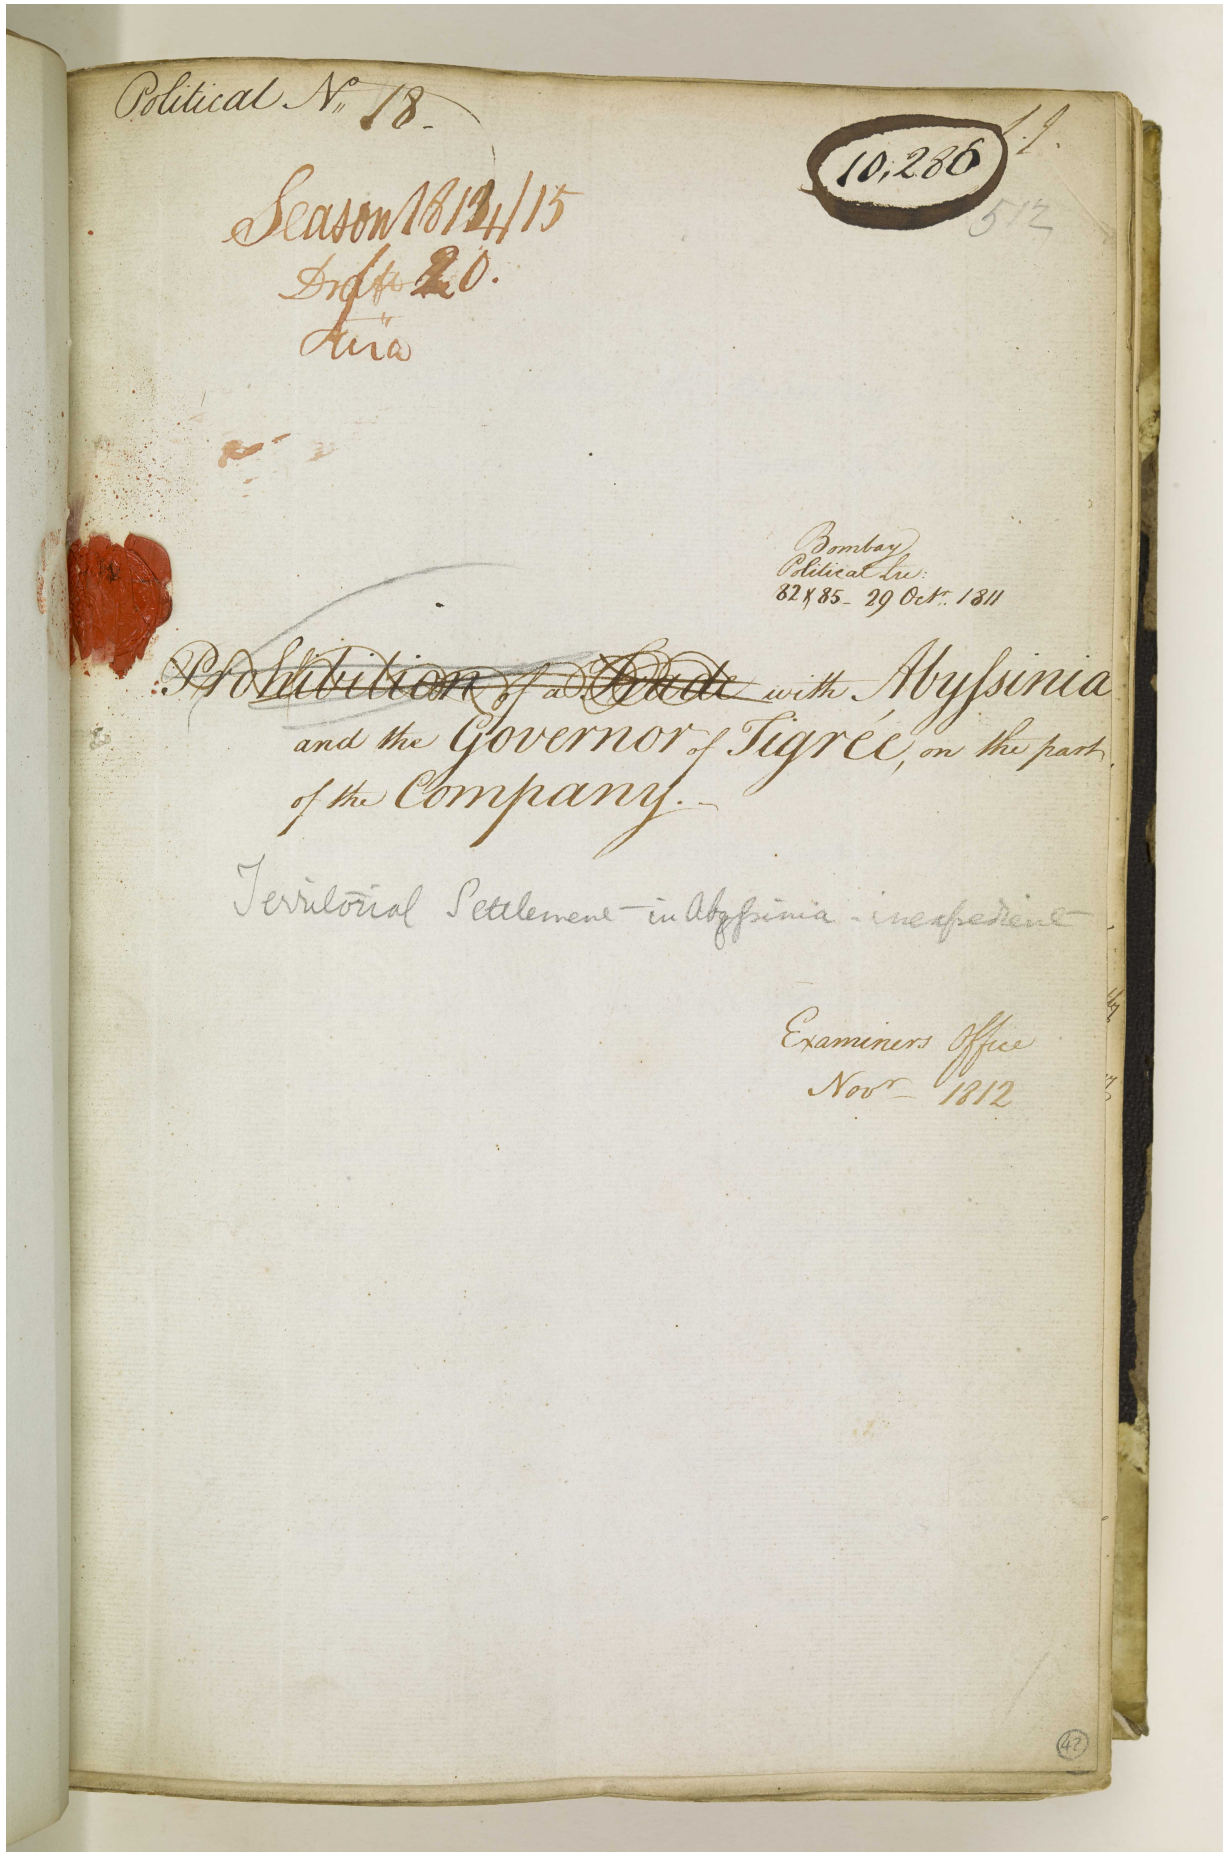 Political No. 18-
10,286
512
Season 1814/15
Drft 20.
Bombay
Political
82 & 85 - 29 Octr. 1811
Prohibition of a Trade with Abyssinia
and the Governor of Tigréé, on the part
of the Company.-
Territorial Settlement in Abyssinia - inexpedient
Examiners Office
Novr 1812
42